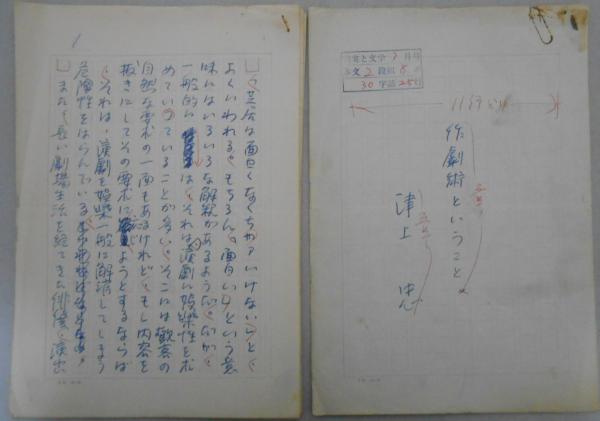 文 2 段組 8
30 字詰 25行
11行どり
作劇術ということ
津上 忠
1
「芝居は面白くなくちゃァいけない」と
よくいわれる。もちろん「面白い」という意
味にはいろいろな解釈があるようだが、
一般的には、それは演劇に娯楽性を求
めていっていることが多い。そこには観客の
自然な要求の一面もあるけれど、もし内容を
抜きにしてその要求に応じようとするならば
それは、演劇を娯楽一般に解消してしまう
危険性をはらんでいる。
また、長い劇場生活を経てきた俳優、演出